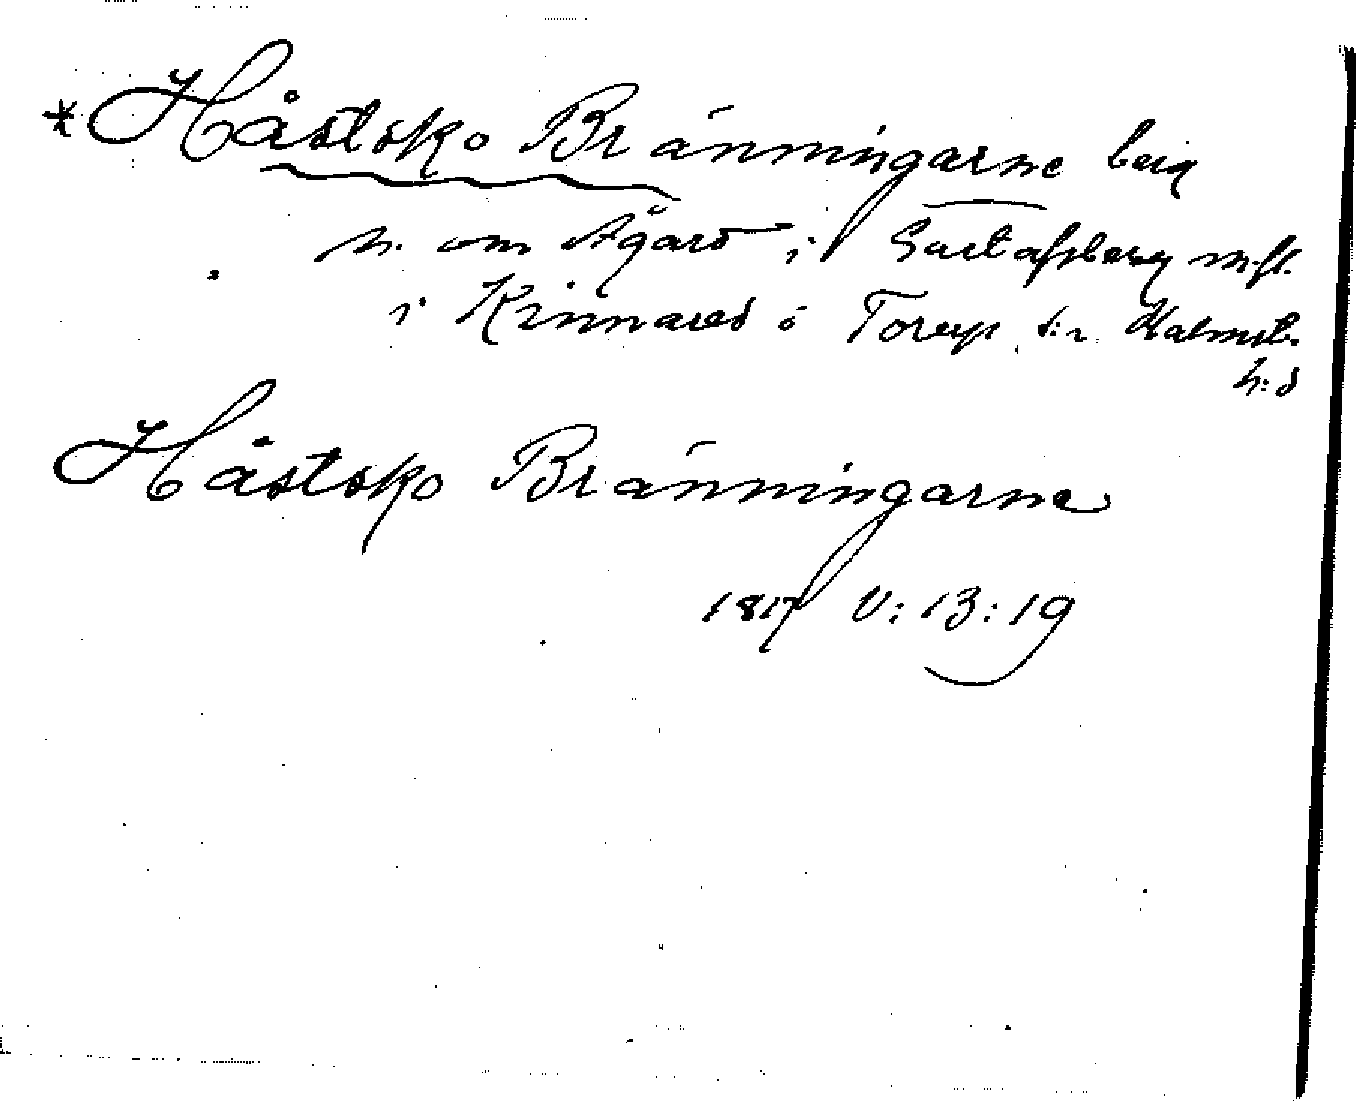 * Håstsko Bränningarne berg
N. om Ågård i Gustafsberg m.fl.
i Kinnared o Torup s:r Halmst.
h:d
Håstsko Bränningarne
1817 V:13:19